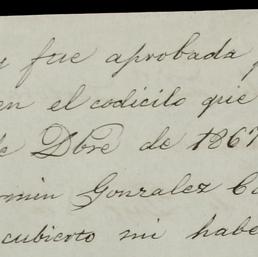 y fue aprobada p
en el codicilo que
de Dbre de 1867
rmin Gonzalez Ca
cubierto mi habe